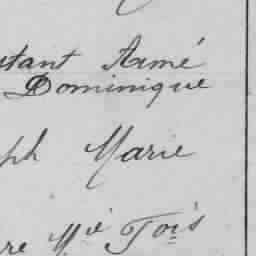 stant Aimé
Dominique
ph Marie
re Mie Fois